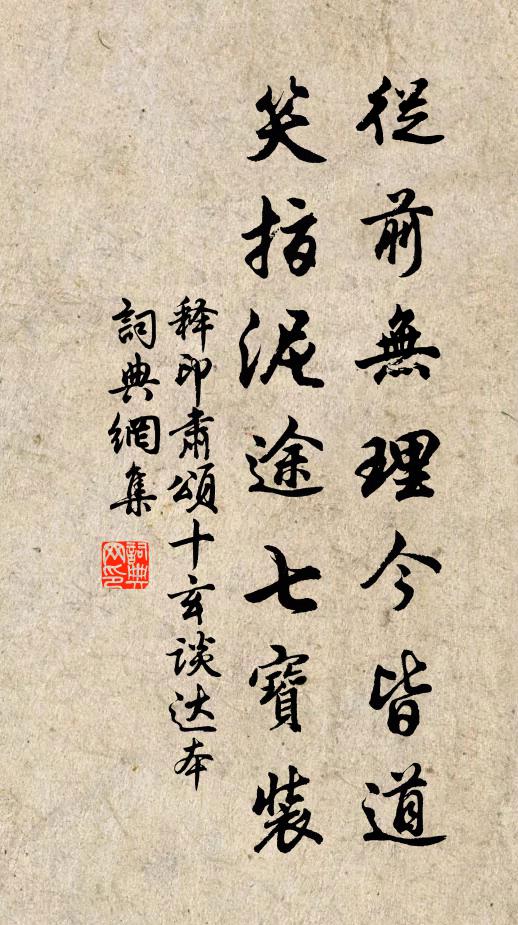 從前無理今皆道
笑指泥途七寶裝
释印肅頌十玄談达本
詞典網集
詞典网印